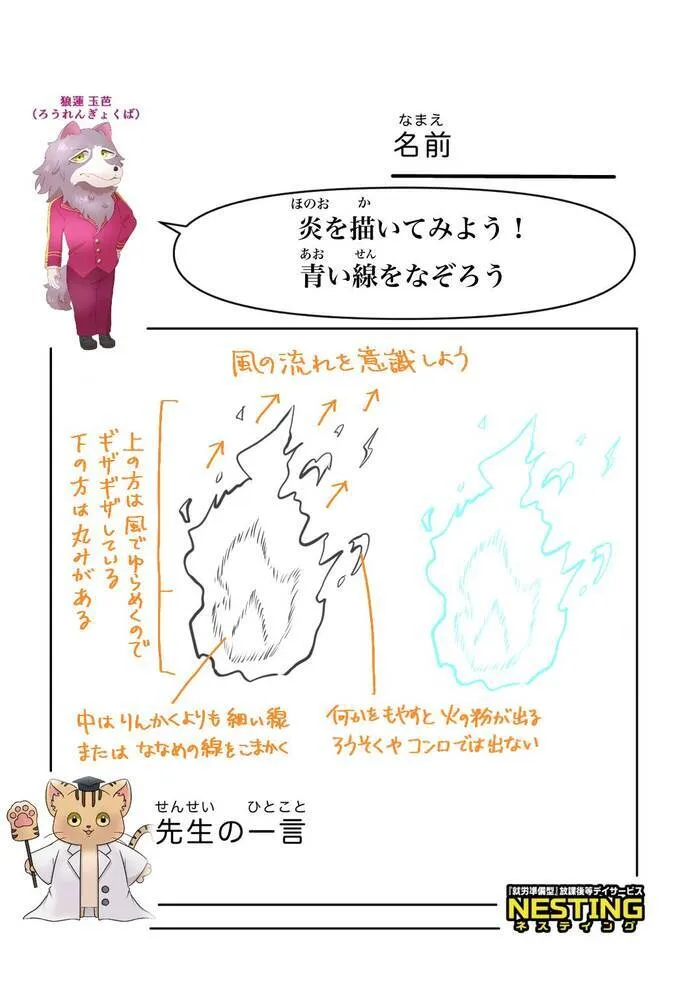 狼蓮 玉芭
(ろうれんぎょくば)
なまえ
名前
ほのお か
炎を描いてみよう！
あお せん
青い線をなぞろう
風の流れを意識しよう
上の方は風でゆらめくので
ギザギザしている
下の方は丸みがある
中はりんかくよりも細い線
またはななめの線をこまかく
何かをもやすと火の粉が出る
ろうそくやコンロでは出ない
せんせい ひとこと
先生の一言
『就労準備型』放課後等デイサービス
NESTING
ネスティング